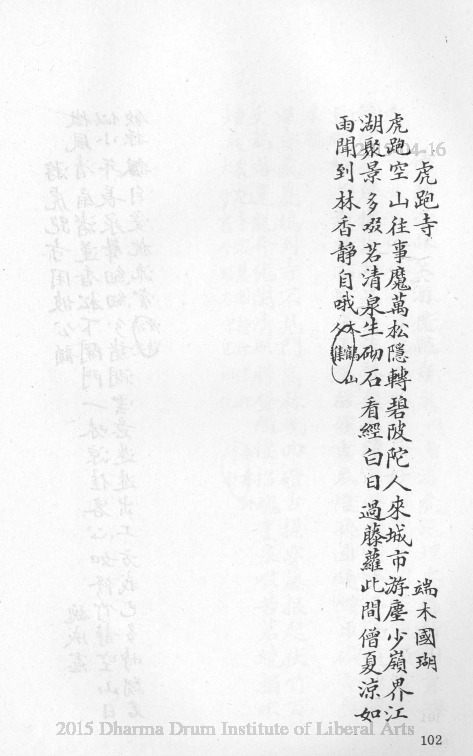 虎跑寺 端木國瑚
虎跑空山往事魔萬松隱轉碧陂陀人來城市游塵少嶺界江
湖聚景多啜茗清泉生砌石看經白日過藤蘿此間僧夏涼如
雨聞到林香靜自哦 太鶴山
人集
04-16
2015 Dharma Drum Institute of Liberal Arts
102